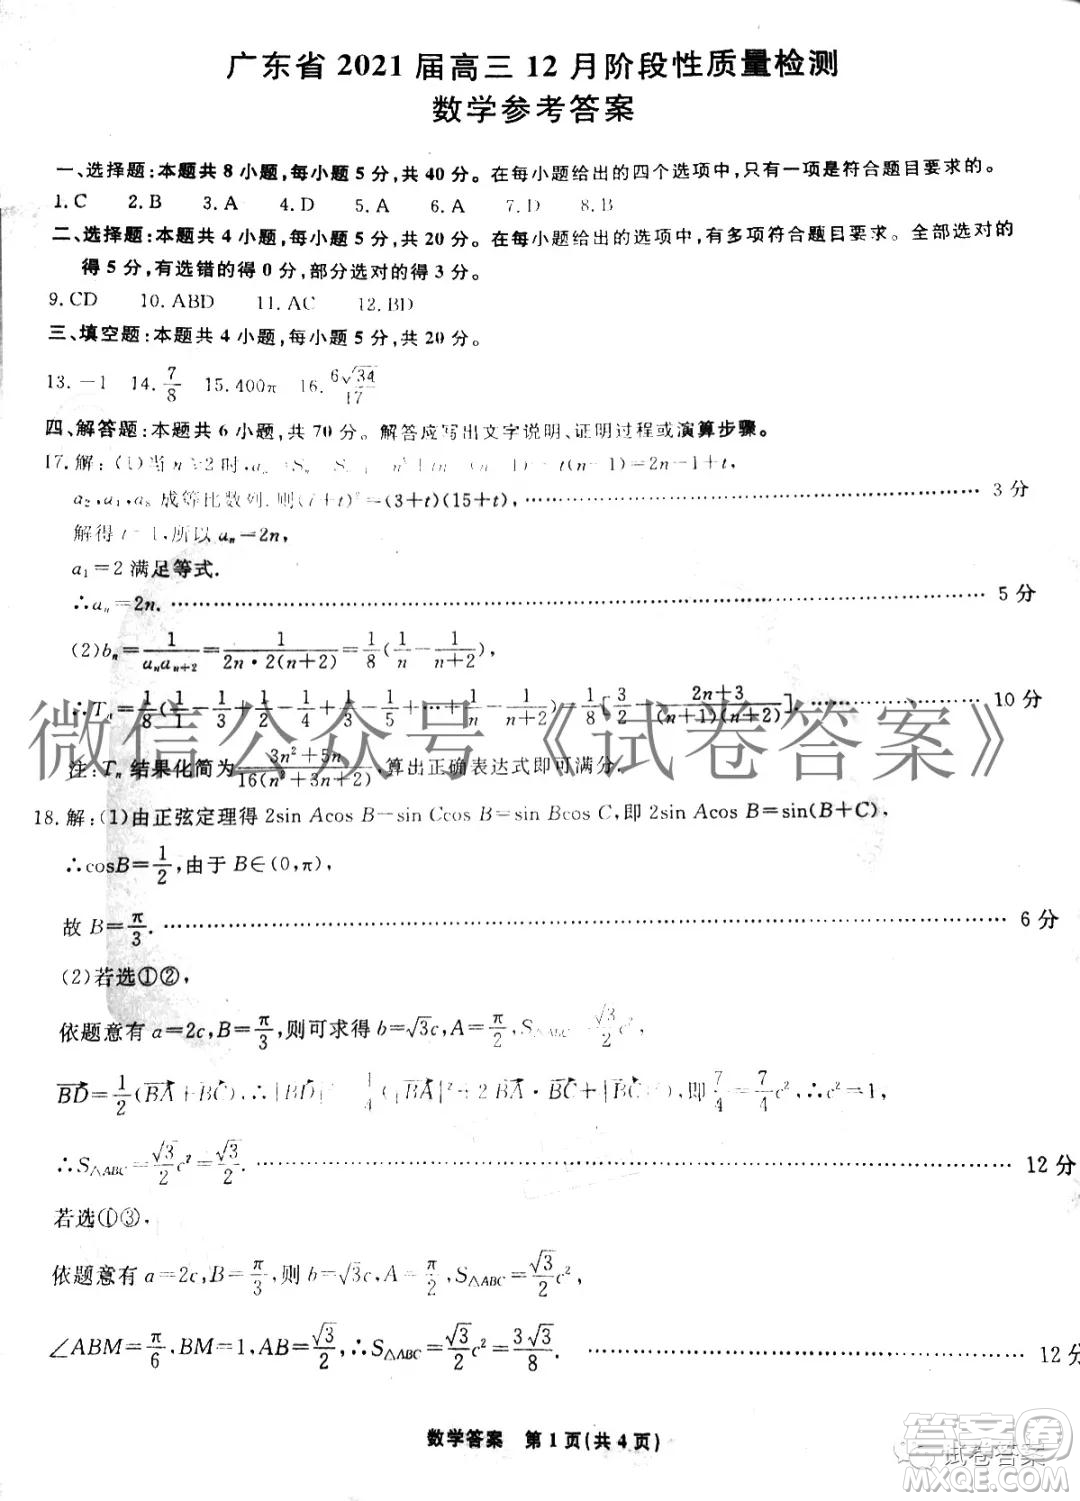 广东省 2021 届高三 12 月阶段性质量检测
数学参考答案
一、选择题:本题共 8 小题,每小题 5 分,共 40 分。在每小题给出的四个选项中,只有一项是符合题目要求的。
1.C 2.B 3.A 4.D 5.A 6.A 7.D 8.B
二、选择题:本题共 4 小题,每小题 5 分,共 20 分。在每小题给出的选项中,有多项符合题目要求。全部选对的
得 5 分,有选错的得 0 分,部分选对的得 3 分。
9.CD 10.ABD 11.AC 12.BD
三、填空题:本题共 4 小题,每小题 5 分,共 20 分。
13.-1 14.7/8 15.400π 16.6√34/17
四、解答题:本题共 6 小题,共 70 分。解答应写出文字说明、证明过程或演算步骤。
17.解:(1)当 n≥2 时,aₙ=Sₙ-S n²+ -t(n-1)=2n-1+t,
a₂,a₁,a₈ 成等比数列,则(7+t)²=(3+t)(15+t),……3 分
解得 t=1,所以 aₙ=2n,
a₁=2 满足等式.
∴aₙ=2n.……5 分
(2)bₙ=1/(aₙaₙ₊₂)=1/(2n·2(n+2))=1/8(1/n-1/(n+2)),
∴Tₙ=1/8(1/1-1/3+ [3/2-(2n+3)/((n+1)(n+2))].……10 分
注:Tₙ 结果化简为(3n²+5n)/(16(n²+3n+2)),算出正确表达式即可满分.
微信公众号《试卷答案》
18.解:(1)由正弦定理得 2sin Acos B-sin Ccos B=sin Bcos C,即 2sin Acos B=sin(B+C),
∴cosB=1/2,由于 B∈(0,π),
故 B=π/3.……6 分
(2)若选①②,
依题意有 a=2c,B=π/3,则可求得 b=√3c,A=π/2,S△ABC=√3/2c²,
BD=1/2(BA+BC),∴|BD|²=1/4(|BA|²+2BA·BC+|BC|²),即7/4=7/4c²,∴c²=1,
∴S△ABC=√3/2c²=√3/2.……12 分
若选①③,
依题意有 a=2c,B=π/3,则 b=√3c,A=π/2,S△ABC=√3/2c²,
∠ABM=π/6,BM=1,AB=√3/2,∴S△ABC=√3/2c²=3√3/8.……12 分
数学答案 第 1 页(共 4 页)
试卷答案
答案圈
MXQE.COM